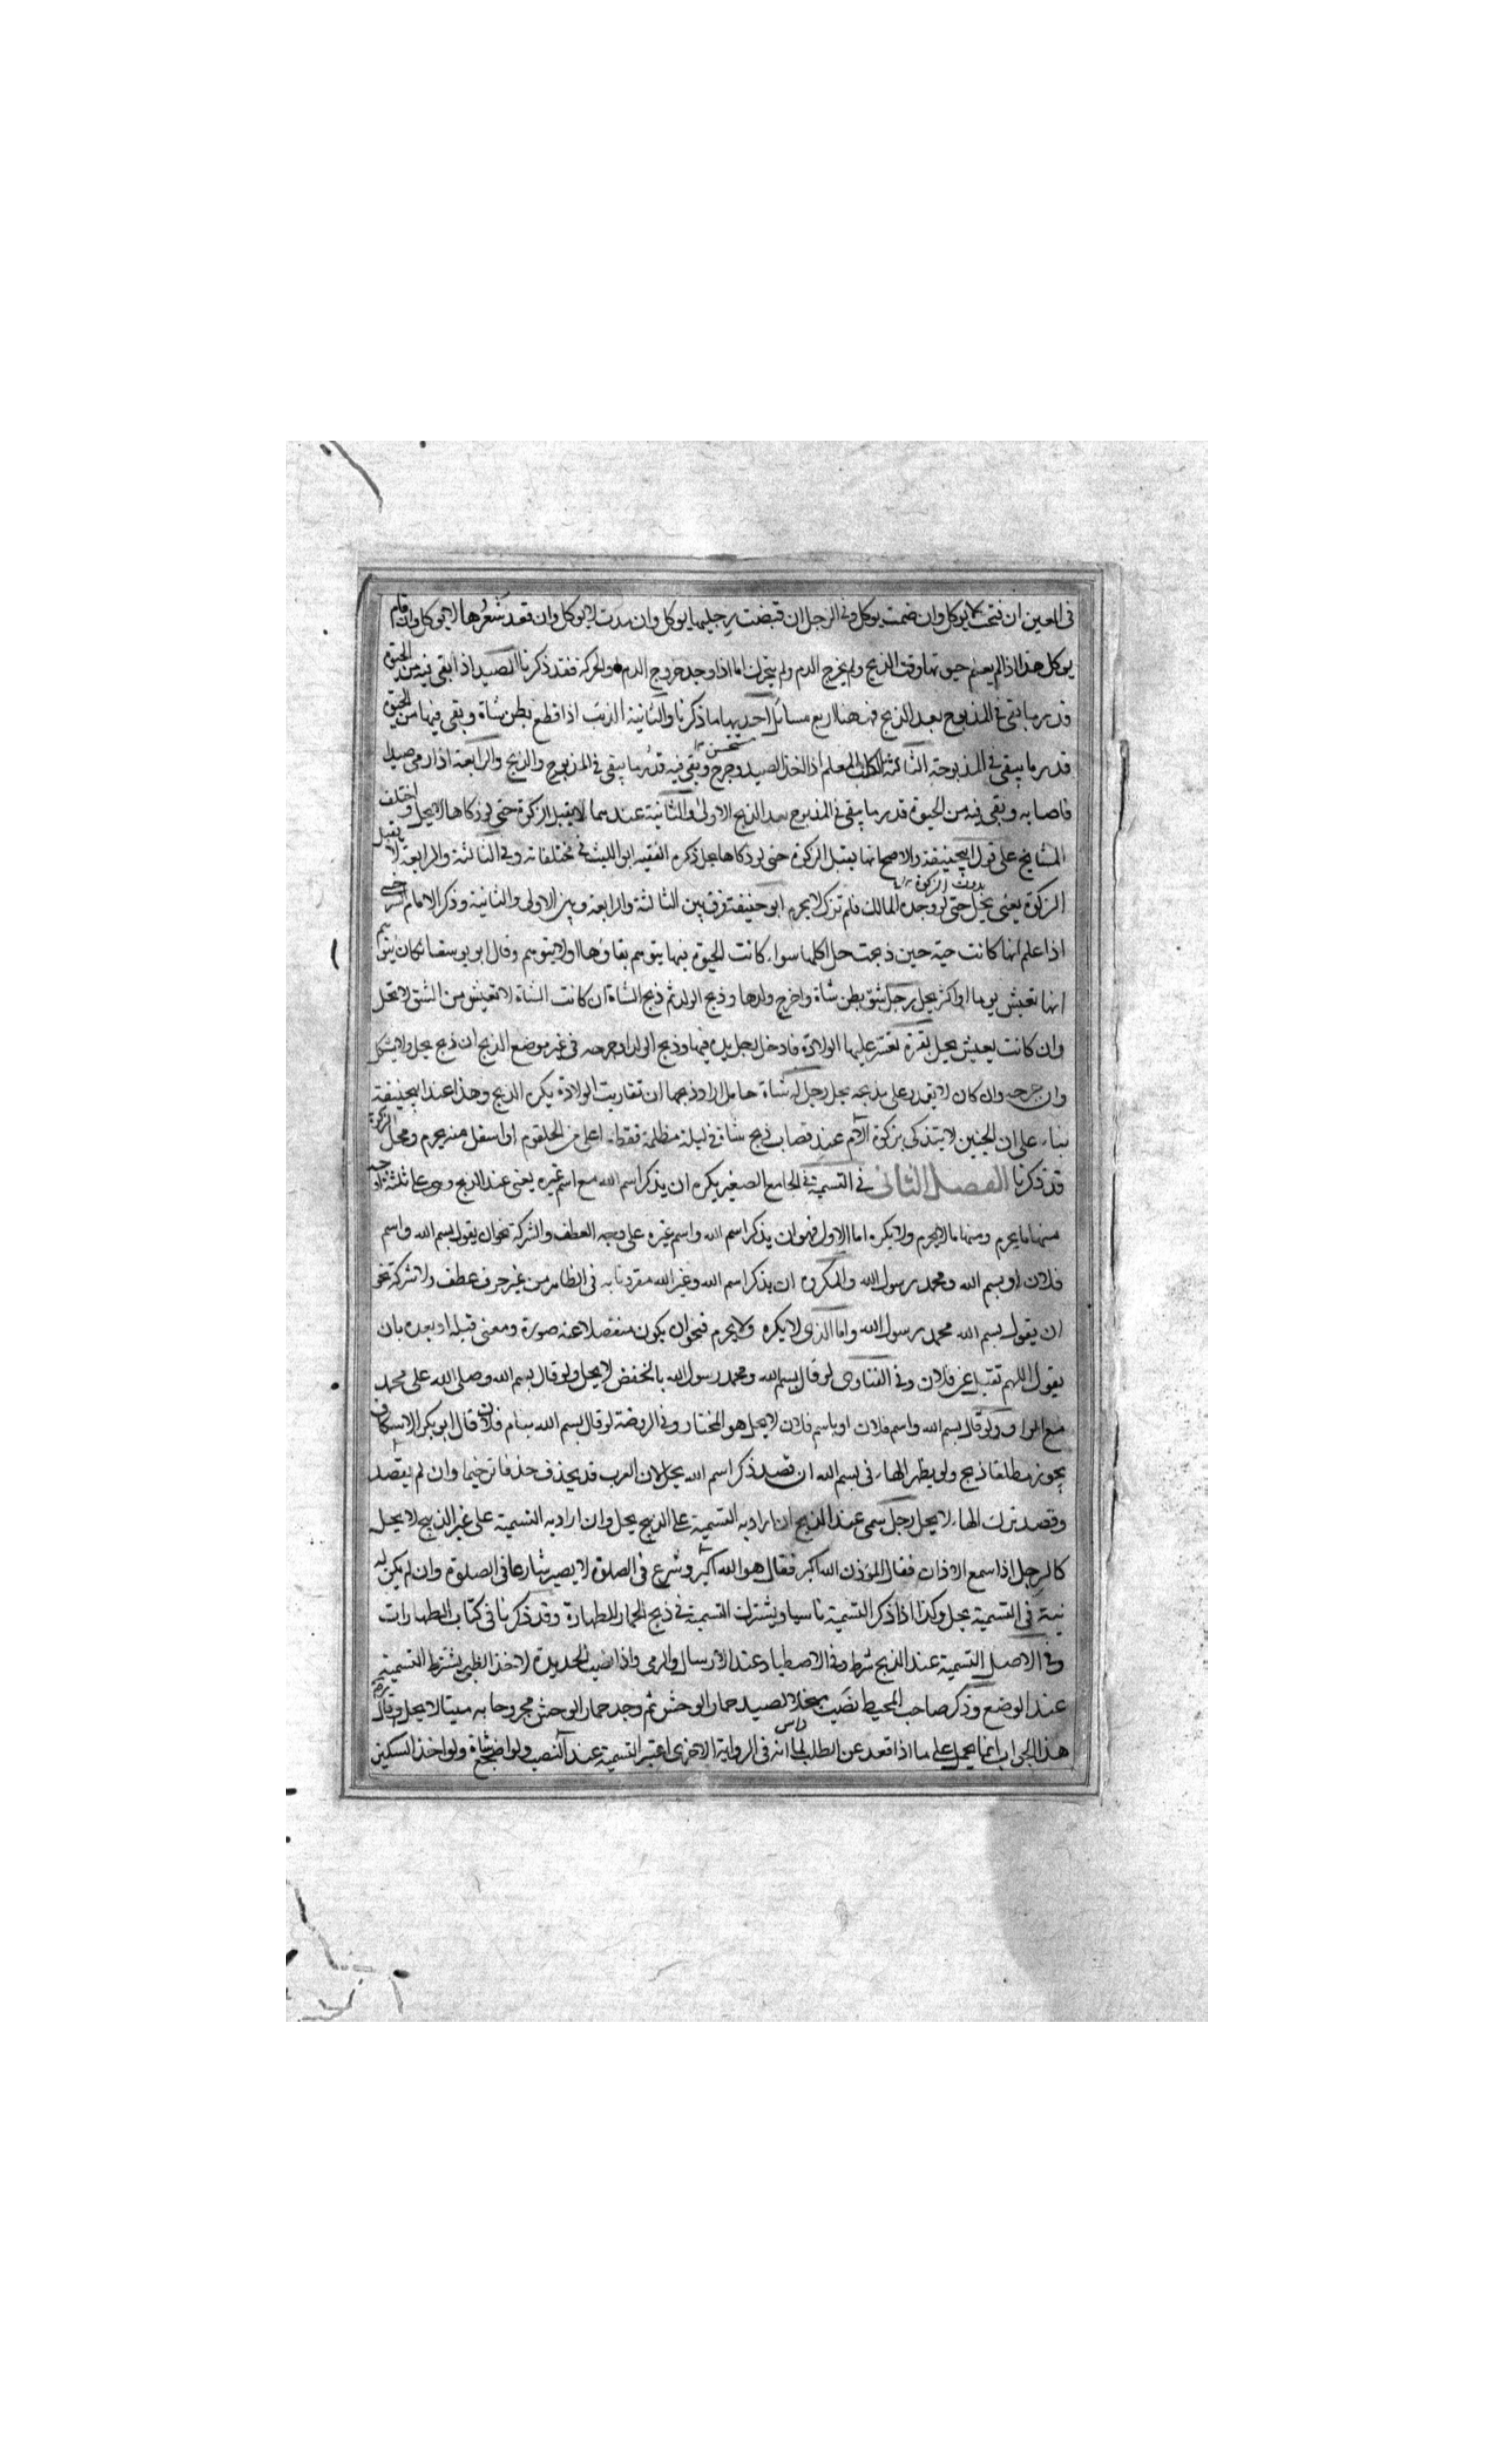 فى العين ان فتحت لا يوكل وان ضمت يوكل وفى الرجل ان قبضت رجليها يوكل وان مدت لا يوكل وان قعد شعرها لا يوكل وان قام
يوكل هذا اذا لم يعلم حيوتها وقت الذبح ولم يخرج الدم ولم يتحرك اما اذا وجد خروج الدم والحركة فقد ذكرنا الصيد اذا بقى فيه من الحيوة
قدر ما يبقى فى المذبوح بعد الذبح فههنا اربع مسائل احديها ما ذكرنا والثانية الذئب اذا قطع بطن شاة وبقى فيها من الحيوة
قدر ما يبقى فى المذبوحة الثالثة الكلب المعلم اذا اخذ الصيد وجرح وبقى فيه قدر ما يبقى فى المذبوح والذبح والرابعة اذا رمى صيدا
فاصابه وبقى فيه من الحيوة قدر ما يبقى فى المذبوح بعد الذبح الاولى والثانية عندهما لا يقبل الزكوة حتى لو ذكاها لا يحل واختلف
المشايخ على قول ابيحنيفة والاصح انها يقبل الزكوة حتى لو ذكاها يحل ذكره الفقيه ابو الليث فى مختلفاته وفى الثالثة والرابعة لا يقبل
بدون الزكوة
الزكوة يعنى يحل حتى لو وجده المالك فلم تزك لا يحرم ابو حنيفة فرق بين الثالثة والرابعة وبين الاولى والثانية وذكر الامام السرخسى
اذا علم انها كانت حية حين ذبحت حل اكلها سواء كانت الحيوة فيها يتوهم بقاؤها او لا يتوهم وقال ابو يوسف ان كان يتوهم
انها تعيش يوما او اكثر يحل رجل شق بطن شاة واخرج ولدها وذبح الولد ثم ذبح الشاة ان كانت الشاة لا تعيش من الشق لا تحل
وان كانت يعيش يحل بقرة تعسر عليها الولادة فادخل رجل يده فيها وذبح الولد او جرحه فى غير موضع الذبح ان ذبح يحل ولا يشكل
وان جرحه وان كان لا يقدر على مذبحه يحل رجل له شاة حامل اراد ذبحها ان تقاربت الولادة يكره الذبح وهذا عند ابيحنيفة
بناء على ان الجنين لا يتذكى بزكوة الام عنده قصاب ذبح شاة فى ليلة مظلمة فقطع اعلى من الحلقوم او اسفل منه يحرم ومحل الزكوة
قد ذكرنا الفصل الثانى فى التسمية فى الجامع الصغير يكره ان يذكر اسم الله مع اسم غيره يعنى عند الذبح وهى على ثلثة اوجه
منها ما يحرم ومنها ما لا يحرم ولا يكره اما الاول فهو ان يذكر اسم الله واسم غيره على وجه العطف والشركة نحو ان يقول بسم الله واسم
فلان او بسم الله ومحمد رسول الله والمكروه ان يذكر اسم الله وغير الله مقرونا به فى الظاهر من غير حرف عطف ولا شركة نحو
ان يقول بسم الله محمد رسول الله واما الذى لا يكره ولا يحرم فنحو ان يكون منفصلا عنه صورة ومعنى قبله او بعده بان
يقول اللهم تقبل عن فلان وفى الفتاوى لو قال بسم الله ومحمد رسول الله بالخفض لا يحل ولو قال بسم الله وصلى الله على محمد
مع الواو ولو قال بسم الله واسم فلان او باسم فلان لا يحل هو المختار وفى الروضة لو قال بسم الله بنام فلان قال ابو بكر الاسكاف
يجوز مطلقا ذبح ولو يظهر الهاء فى بسم الله ان قصد ذكر اسم الله يحل لان العرب قد يحذف حذفا ترخيما وان لم يقصد
وقصد ترك الهاء لا يحل رجل سمى عند الذبح ان اراد به التسمية على الذبح يحل وان اراد به التسمية على غير الذبح لا يحل
كالرجل اذا سمع الاذان فقال المؤذن الله اكبر فقال هو الله اكبر وشرع فى الصلوة لا يصير شارعا فى الصلوة وان لم يكن له
نية فى التسمية يحل وكذا اذا ذكر التسمية ناسيا ويشترك التسمية فى ذبح الحمار للطهارة وقد ذكرنا فى كتاب الطهارات
وفى الاصل التسمية عند الذبح شرط وفى الاصطياد عند الارسال والرمى واذا نصب الحديدة لاخذ الظبى يشترط التسمية
عند الوضع وذكر صاحب المحيط نصب منجلا لصيد حمار الوحش ثم وجد حمار الوحش مجروحا به ميتا لا يحل وقال
هذا الجواب انما يحمل على ما اذا قعد عن الطلب لما انه فى الرواية الاخرى اعتبر التسمية عند النصب ولو اضجع شاة ولو اخذ السكين